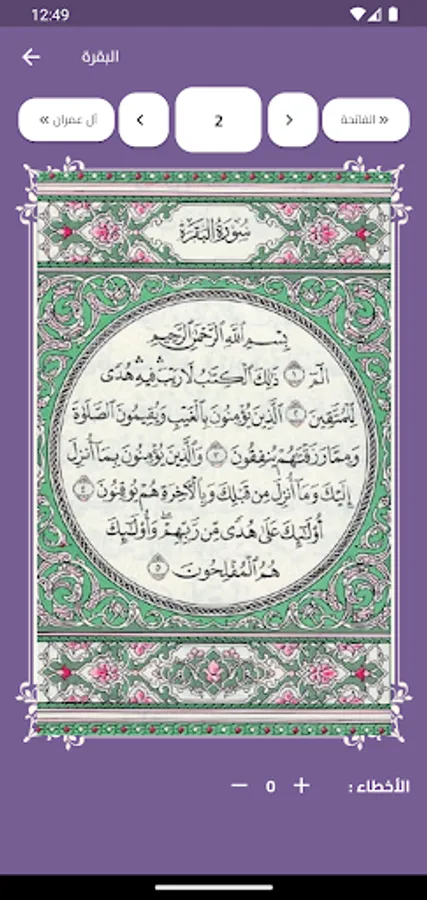 12:49
البقرة
الفاتحة »
2
« آل عمران
سُورَةُ البَقَرَةِ
بِسْمِ ٱللَّهِ ٱلرَّحْمَٰنِ ٱلرَّحِيمِ
الٓمٓ ١ ذَٰلِكَ ٱلْكِتَٰبُ لَا رَيْبَ ۛ فِيهِ ۛ هُدًى
لِّلْمُتَّقِينَ ٢ ٱلَّذِينَ يُؤْمِنُونَ بِٱلْغَيْبِ وَيُقِيمُونَ ٱلصَّلَوٰةَ
وَمِمَّا رَزَقْنَٰهُمْ يُنفِقُونَ ٣ وَٱلَّذِينَ يُؤْمِنُونَ بِمَآ أُنزِلَ
إِلَيْكَ وَمَآ أُنزِلَ مِن قَبْلِكَ وَبِٱلْءَاخِرَةِ هُمْ يُوقِنُونَ ٤
أُو۟لَٰٓئِكَ عَلَىٰ هُدًى مِّن رَّبِّهِمْ ۖ وَأُو۟لَٰٓئِكَ
هُمُ ٱلْمُفْلِحُونَ ٥
الأخطاء :
+ 0 −